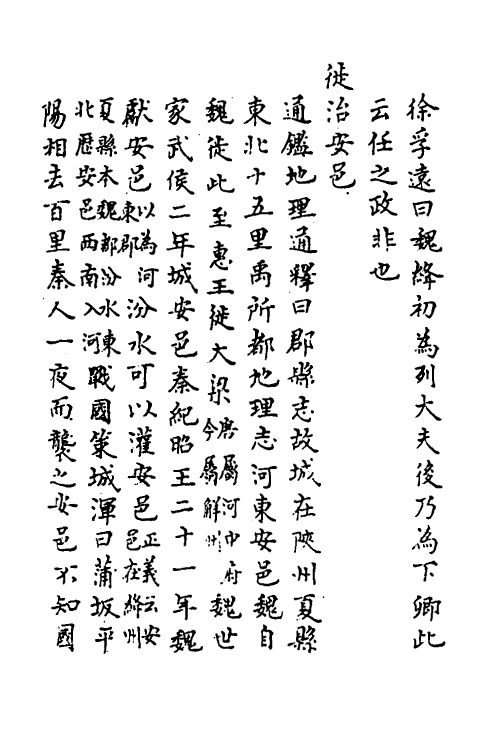 徐孚遠曰魏絳初為列大夫後乃為下卿此
云任之政非也
徙治安邑
通鑑地理通釋曰郡縣志故城在陝州夏縣
東北十五里禹所都地理志河東安邑魏自
魏徙此至惠王徙大梁唐屬河中府今屬解州魏世
家武侯二年城安邑秦紀昭王二十一年魏
獻安邑以為河東郡汾水可以灌安邑正義云安邑在絳州
夏縣本魏都汾水東北歷安邑西南入河戰國策城渾曰蒲坂平
陽相去百里秦人一夜而襲之安邑不知國